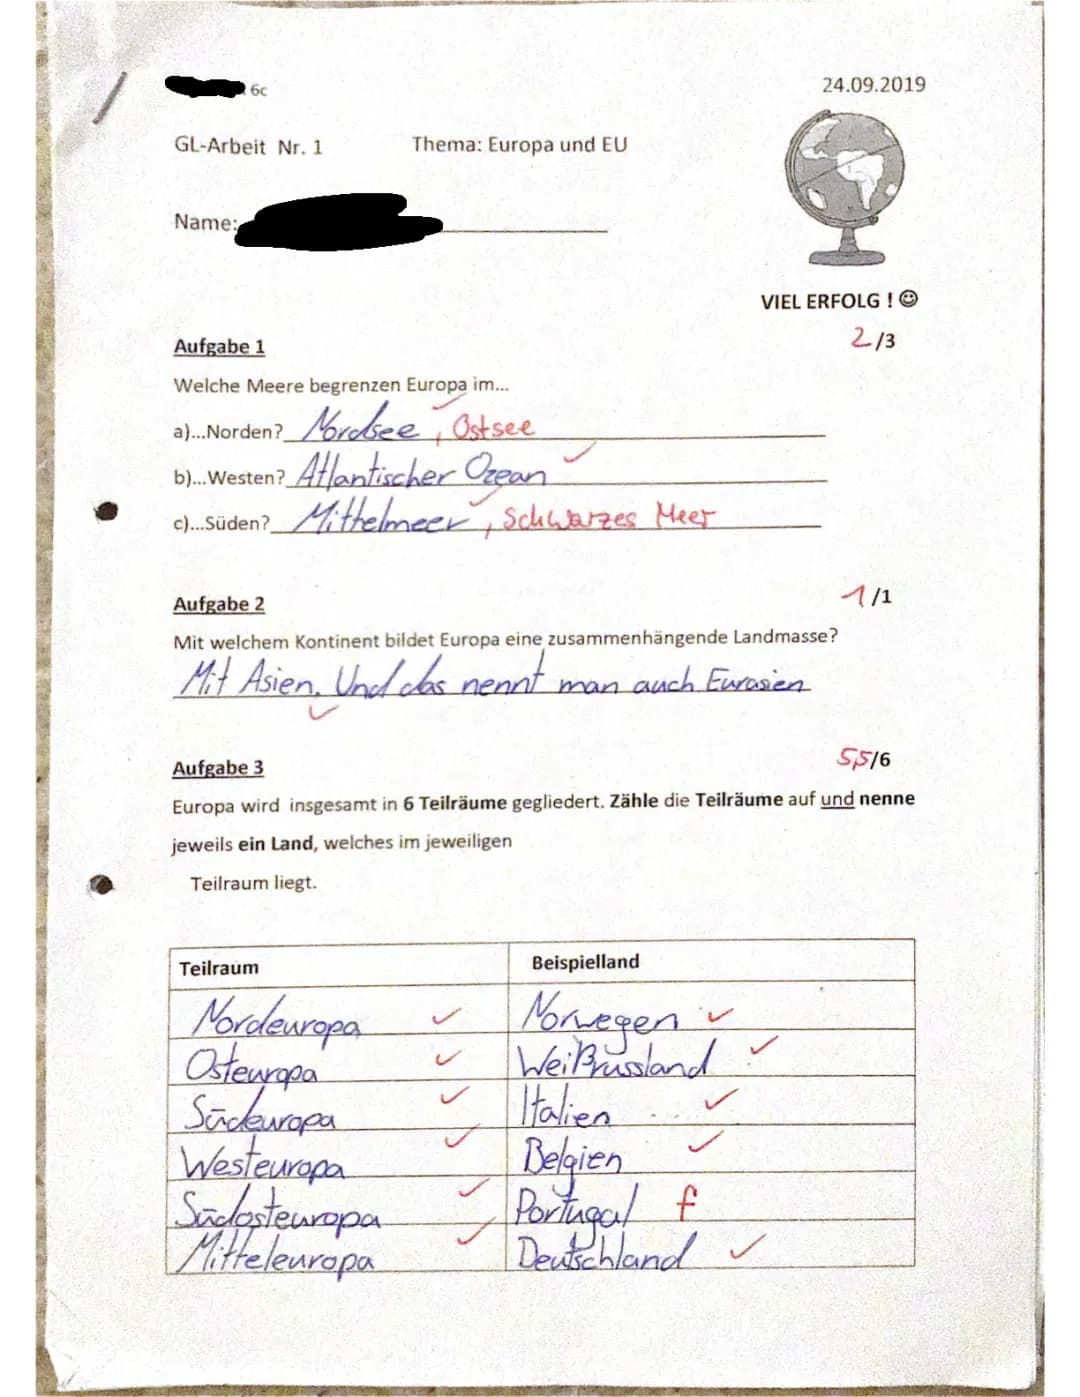 6c
24.09.2019
GL-Arbeit Nr. 1 Thema: Europa und EU
Name:
VIEL ERFOLG ! ☺
Aufgabe 1 2/3
Welche Meere begrenzen Europa im...
a)...Norden? Nordsee, Ostsee
b)...Westen? Atlantischer Ozean
c)...Süden? Mittelmeer, Schwarzes Meer
Aufgabe 2 1/1
Mit welchem Kontinent bildet Europa eine zusammenhängende Landmasse?
Mit Asien. Und das nennt man auch Eurasien
Aufgabe 3 5,5/6
Europa wird insgesamt in 6 Teilräume gegliedert. Zähle die Teilräume auf und nenne
jeweils ein Land, welches im jeweiligen
Teilraum liegt.
Teilraum Beispielland
Nordeuropa ✓ Norwegen ✓
Osteuropa ✓ Weißrussland ✓
Südeuropa ✓ Italien ✓
Westeuropa ✓ Belgien ✓
Südosteuropa ✓ Portugal f
Mitteleuropa ✓ Deutschland ✓